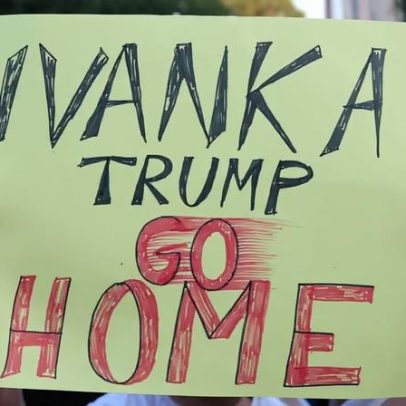 IVANKA
TRUMP
GO
HOME